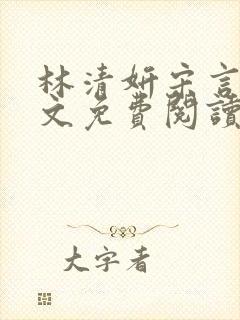 林清妍宋言
文免費閱讀
大字者